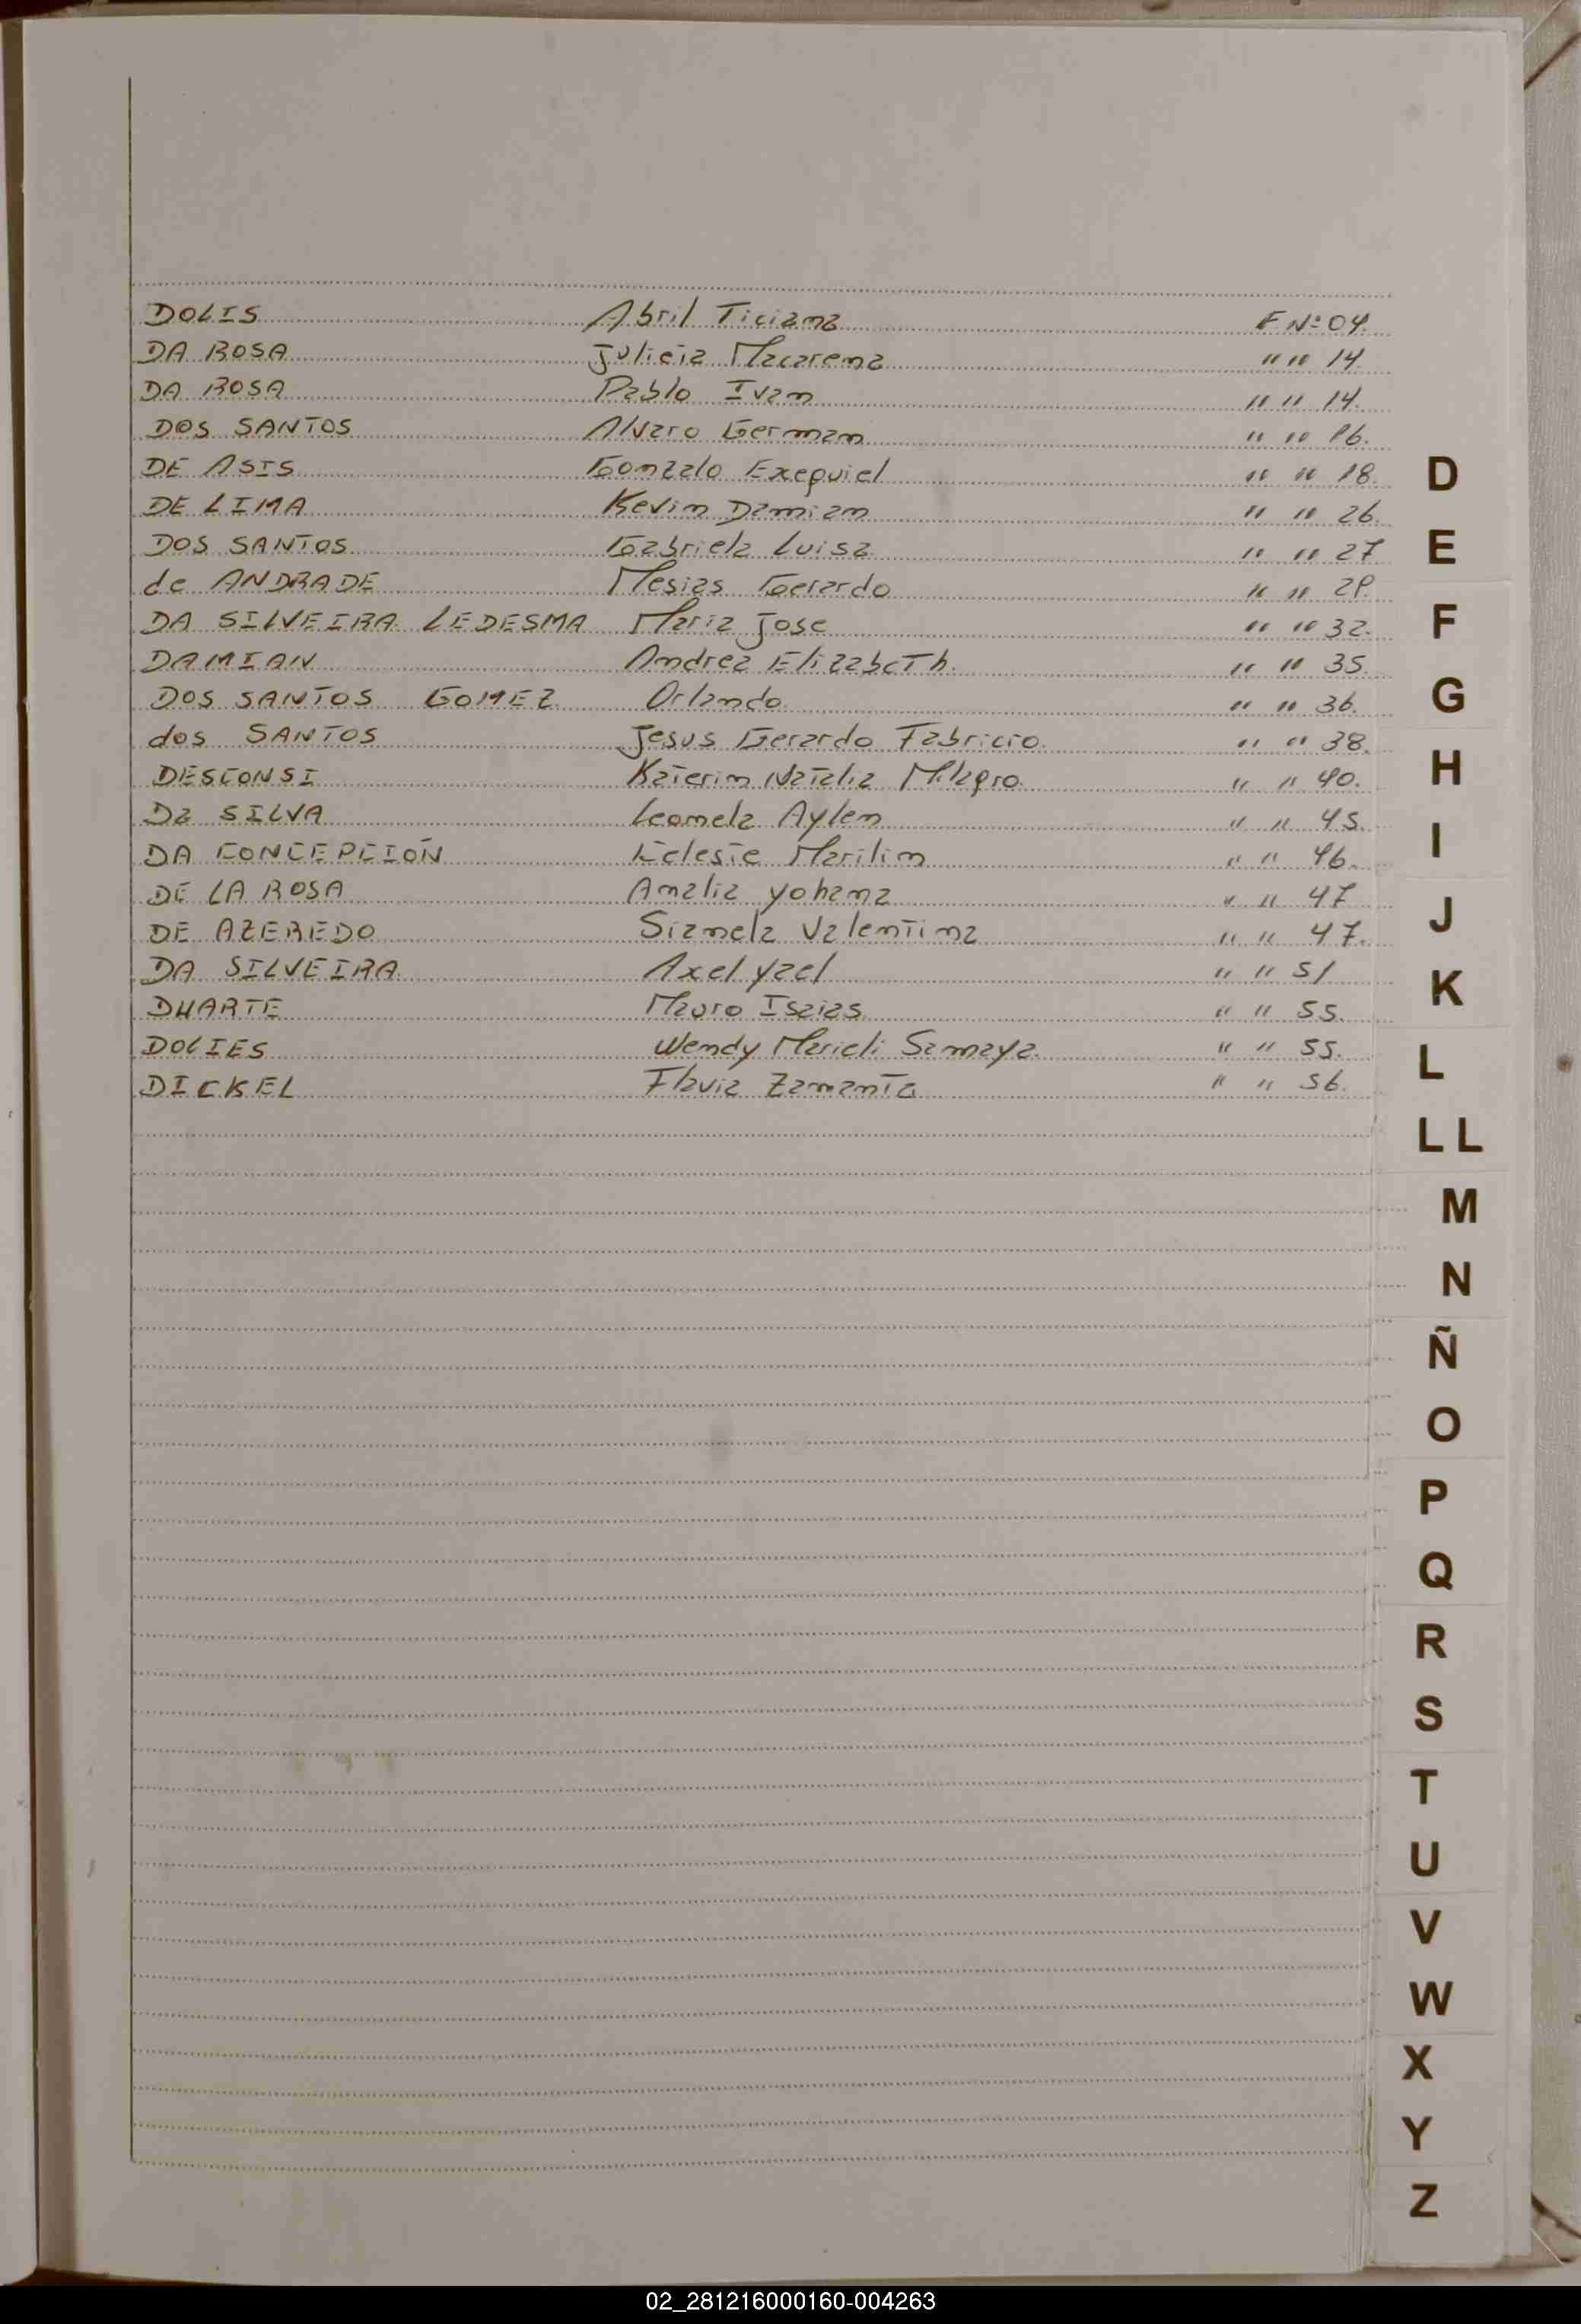 DOLIS Abril Ticiana F Nº 04.
DA ROSA Julieia Macarena " " 14.
DA ROSA Pablo Ivan " " 14.
DOS SANTOS Alvaro German " " 16.
DE ASIS Gonzalo Exequiel " " 18.
DE LIMA Kevin Damian " " 26.
DOS SANTOS Gabriela Luisa " " 27
de ANDRADE Mesias Gerardo " " 29.
DA SILVEIRA LEDESMA Maria Jose " " 32.
DAMIAN Andrea Elizabeth. " " 35.
DOS SANTOS GOMEZ Orlando " " 36.
dos SANTOS Jesus Gerardo Fabricio. " " 38.
DESCONSI Katerin Natalia Milagro. " " 40.
Da SILVA Leonela Aylen " " 45.
DA CONCEPCIÓN Celeste Marilin " " 46.
DE LA ROSA Analia Yohana " " 47
DE AZEREDO Sianela Valentina " " 47.
DA SILVEIRA Axel Yael " " 51
DUARTE Mauro Isaias " " 55.
DOLIES Wendy Marieli Samaya. " " 55.
DICKEL Flavia Zamanta " " 56.
D
E
F
G
H
I
J
K
L
LL
M
N
Ñ
O
P
Q
R
S
T
U
V
W
X
Y
Z
02_281216000160-004263